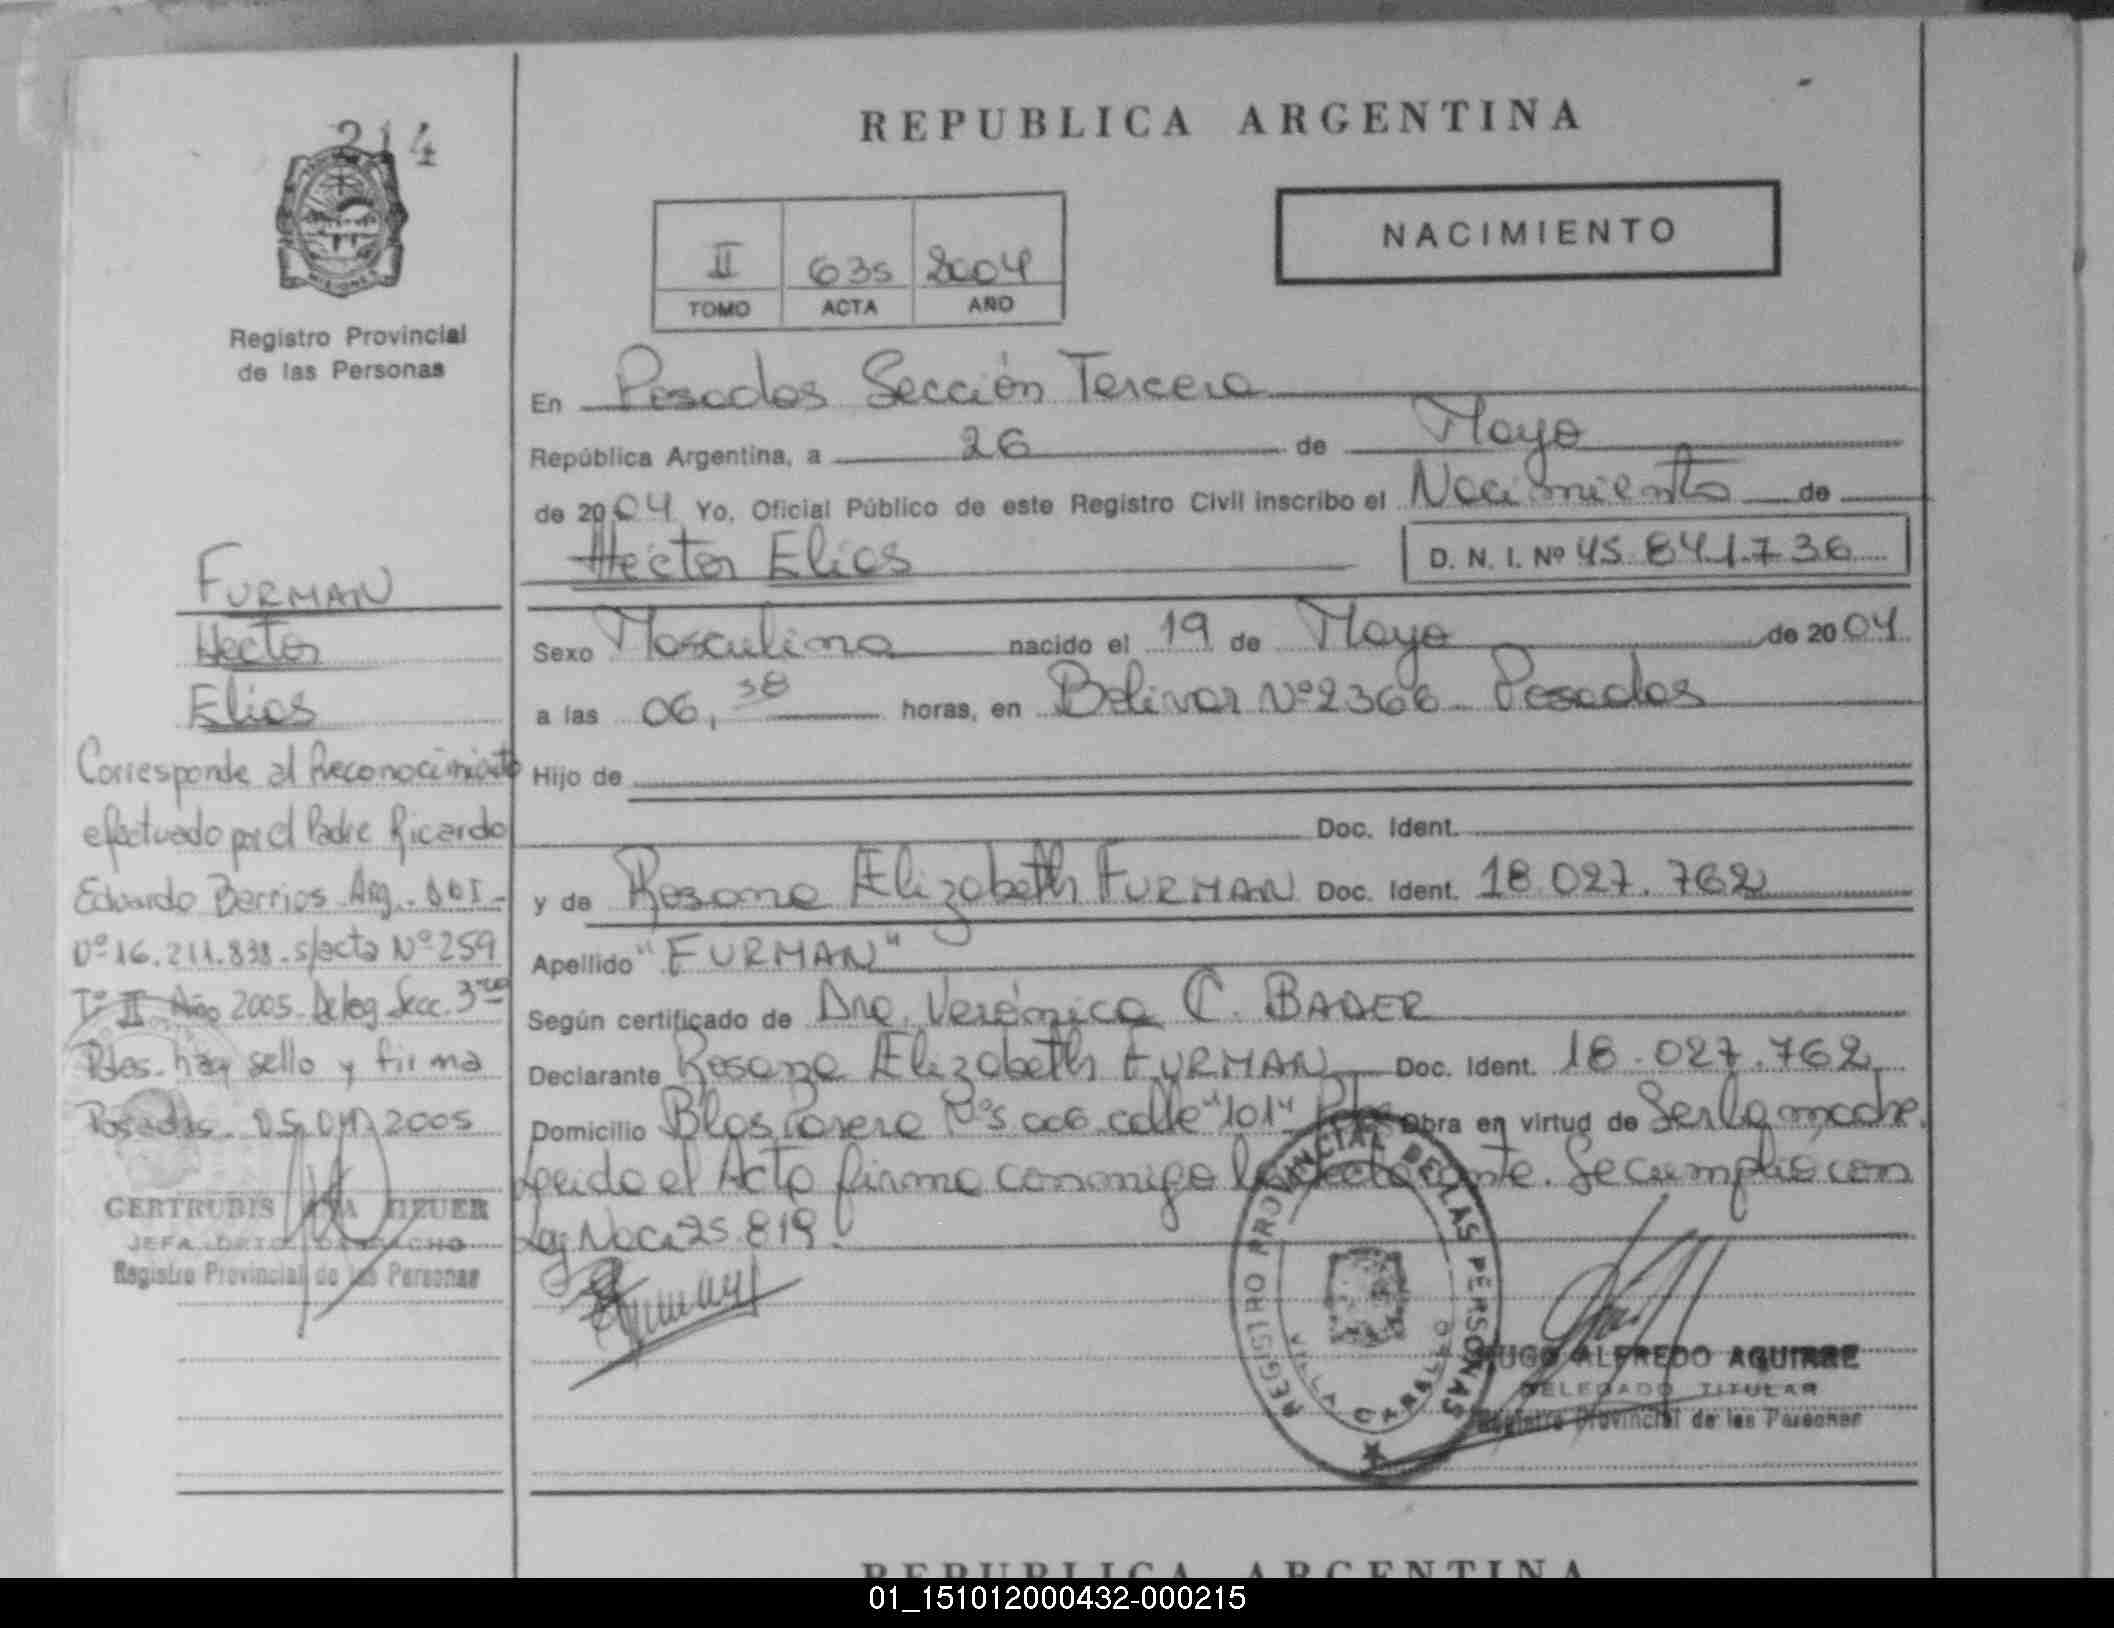 214
Registro Provincial
de las Personas
REPUBLICA ARGENTINA
II 635 2004
TOMO ACTA AÑO
NACIMIENTO
En Posadas Sección Tercera
República Argentina, a 26 de Mayo
de 2004 Yo, Oficial Público de este Registro Civil inscribo el Nacimiento de
Hector Elias D. N. I. Nº 45.841.736
Sexo Masculino nacido el 19 de Mayo de 2004
a las 06,38 horas, en Bolivar Nº 2366 Posadas
Hijo de
Doc. Ident.
y de Rosana Elizabeth FURMAN Doc. Ident. 18.027.762
Apellido "FURMAN"
Según certificado de Dra. Verónica C. BADER
Declarante Rosana Elizabeth FURMAN Doc. Ident. 18.027.762
Domicilio Blas Parera Nº 5006 calle "101" Pdas Obra en virtud de Ser la madre.
Leido el Acta firma conmigo la declarante. Se cumplió con
Ley Nac. 25.819.
Furman
FURMAN
Hector
Elias
Corresponde al Reconocimiento
efectuado por el Padre Ricardo
Eduardo Berrios Arg. DNI-
Nº 16.211.838. s/acta Nº 259
Tº II Año 2005. Deleg Secc. 3ra
Pdas. hay sello y firma
Posadas. 05.04.2005
GERTRUDIS
JEFA DPTO. DESPACHO
Registro Provincial de las Personas
REGISTRO PROVINCIAL DE LAS PERSONAS
VILLA CABELLO
HUGO ALFREDO AGUIRRE
DELEGADO TITULAR
Registro Provincial de las Personas
REPUBLICA ARGENTINA
01_151012000432-000215